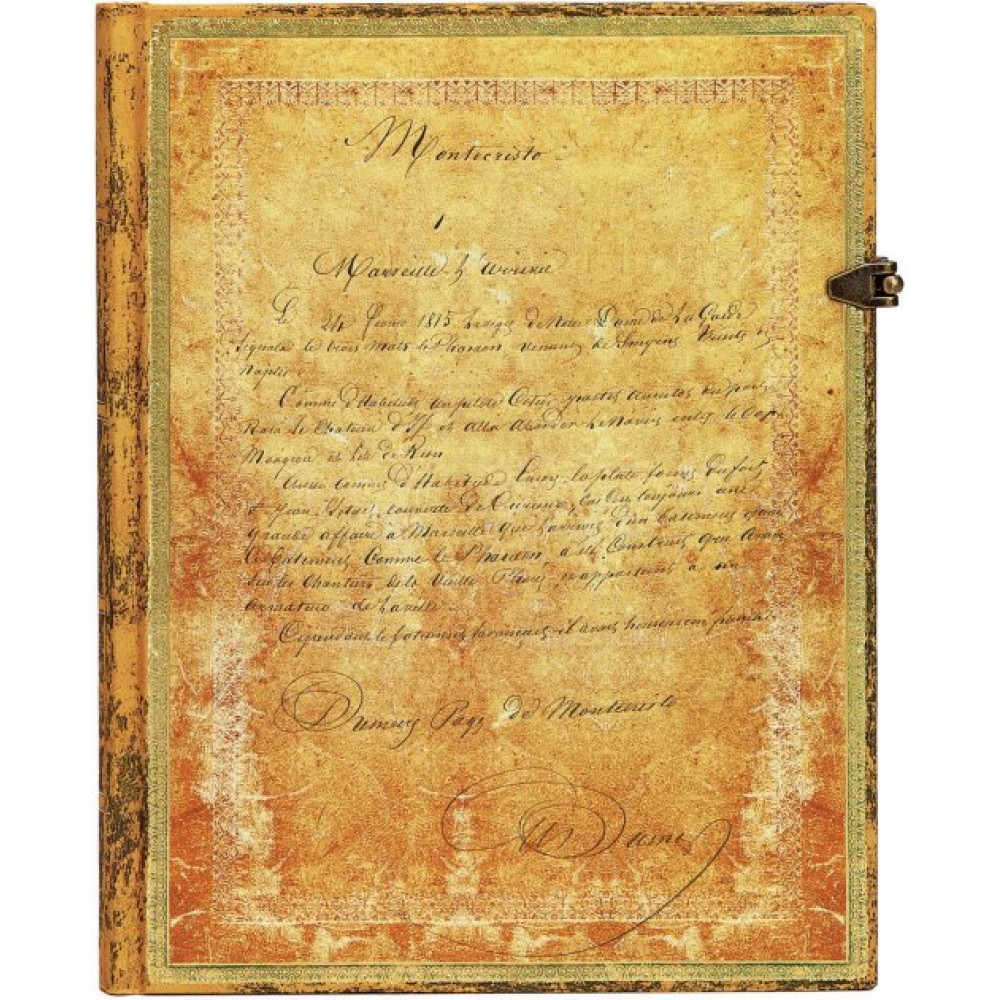 Montecristo
1
Marseille L'arrivée
Le 24 Février 1815 la vigie de Notre Dame de la Garde
Signala le trois mats le Pharaon venant de Smyrne Trieste et
Naples.
Comme d'habitude un pilote Cotier partit aussitot du port
Rasa le Chateau d'If et alla aborder le Navire entre le Cap
Morgiou et l'ile de Rion
Aussi comme d'habitude la plate forme du fort
St Jean couverte de Curieux, toujours une
grande affaire à Marseille que l'arrivée d'un batiment
batiment Comme le Pharaon, a été Construit
Sur les Chantiers de la Vieille et appartient à un
armateur de la ville
Cependant le batiment s'avançait, il avait heureusement franchi
Dumas Pagg de Montecristo
Al Dumas